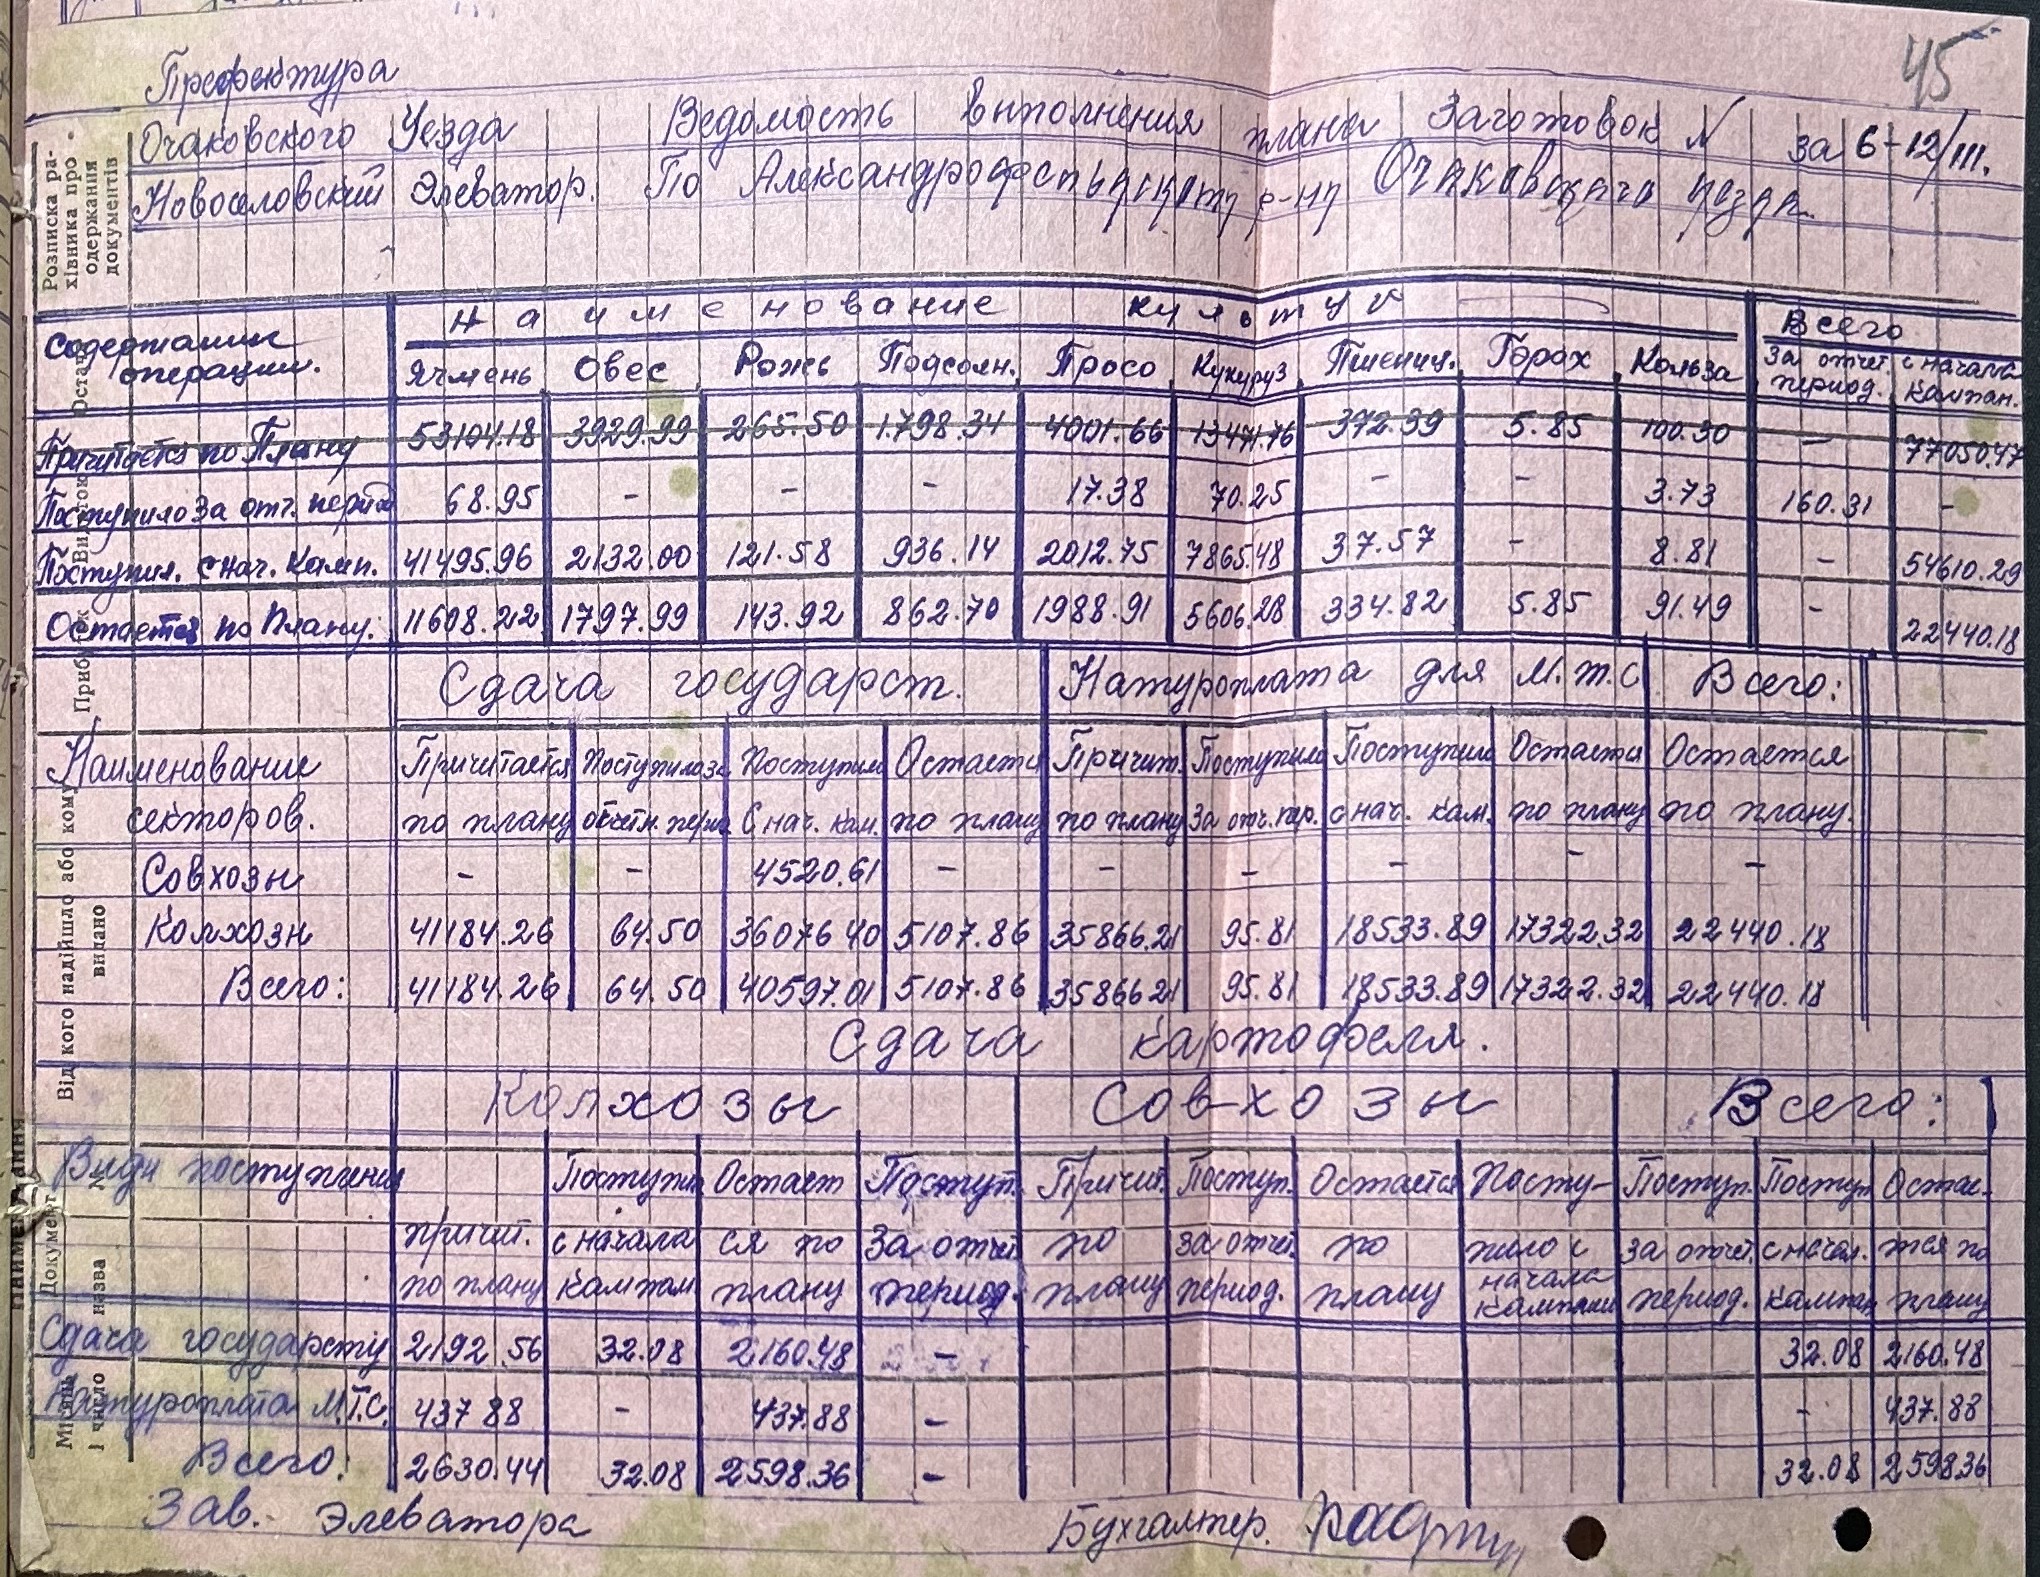 45
Префектура
Очаковского Уезда Ведомость выполнения плана Заготовок № за 6-12/III.
Новоселовский Элеватор. По р-ну Очаковского уезда.
Розписка ра-
хівника про
одержання
документів
Содержание операции. Наименование культур Всего
Ячмень Овес Рожь Подсолн. Просо Кукуруз Пшениц. Горох Кольза За отчет. период. с начала кампан.
Причитается по Плану 53104.18 3929.99 265.50 1.798.34 4001.66 13471.76 372.39 5.85 100.30 — 77050.47
Поступило за отч. период 68.95 - - - 17.38 70.25 - - 3.73 160.31 -
Поступил. с нач. Камп. 41495.96 2132.00 121.58 936.14 2012.75 7865.48 37.57 - 8.81 - 54610.29
Остается по Плану: 11608.22 1797.99 143.92 862.70 1988.91 5606.28 334.82 5.85 91.49 - 22440.18
Сдача государст. Натуроплата для М.Т.С Всего:
Наименование Причитается Поступило за Поступило Остается Причит. Поступило Поступило Остается Остается
секторов. по плану отчетн. период С нач. кам. по плану по плану За отч. пер. с нач. кам. по плану по плану.
Совхозы - - 4520.61 - - - - - -
Колхозы 41184.26 64.50 36076.40 5107.86 35866.21 95.81 18533.89 17322.32 22440.18
Всего: 41184.26 64.50 40597.01 5107.86 3586621 95.81 18533.89 17322.32 22440.18
Сдача картофеля.
Колхозы Совхозы Всего:
Виды поступления Поступил Остает Поступ. Причит. Поступ. Остается Посту- Поступ. Поступ Остае-
причит. с начала ся по За отчет по за отчет. по пило с за отчет. с начал. тся по
по плану кампан плану период. плану период. плану начала кампании период. кампан плану
Сдача государству 2192.56 32.08 2160.48 - 32.08 2160.48
Натуроплата М.Т.С. 437 88 - 437.88 - - 437.88
Всего: 2630.44 32.08 2598.36 - 32.08 259836
Зав. Элеватора Бухгалтер.
Прибуток
Видаток
Остача
Від кого надійшло або кому
видано
Найменування
Документ
№
назва
Місяць
і число